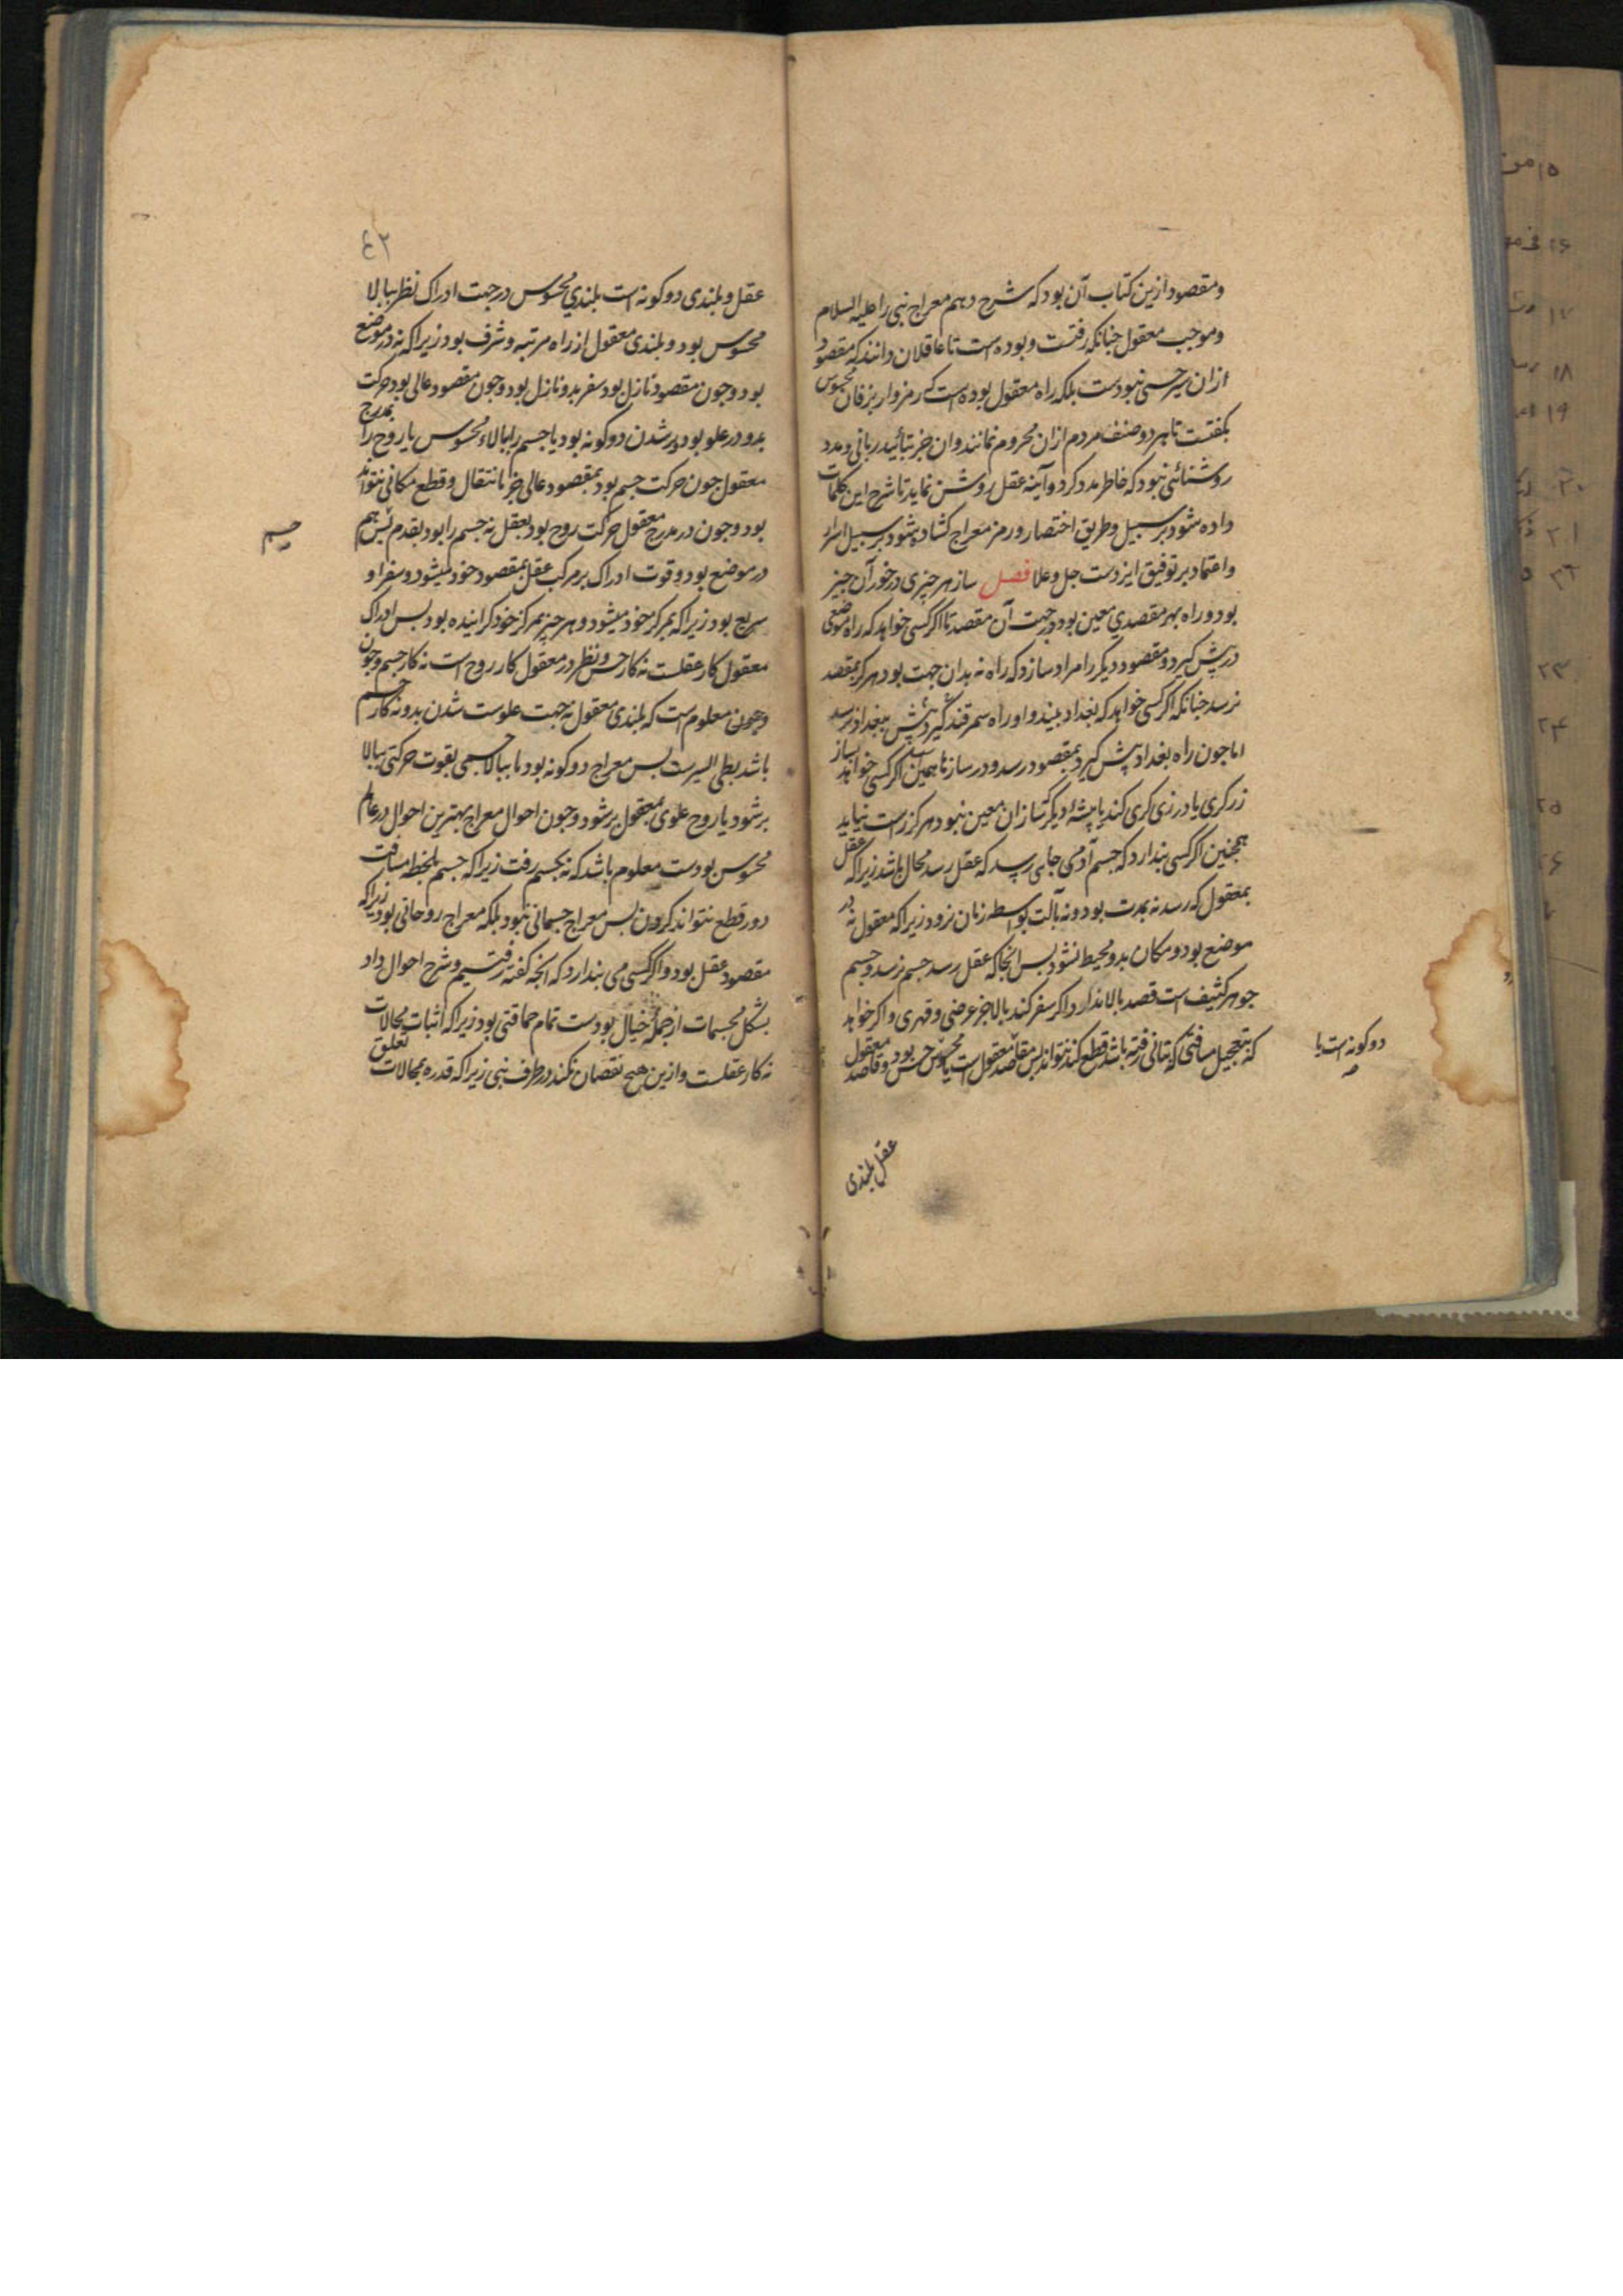 ومقصود ازین کتاب آن بود که شرح دهم معراج نبی را علیه السلام
وموجب معقول جنانکه رفتست وبوده است تا عاقلان دانند که مقصود
ازان سیر حسی نبودست بلکه راه معقول بوده است که رمزوار بزفان محسوس
بکفتست تا هر دو صنف مردم ازان محروم نمانند وان جز بتأیید ربانی ومدد
روشنائی نبود که خاطر مدد کرد وآینه عقل روشن نماید تا شرح این کلمات
داده شود بر سبیل وطریق اختصار ورمز معراج کشاده شود بر سبیل اسرار
واعتماد بر توفیق ایزدست جل وعلا فصل ساز هر چیزی درخور آن چیز
بود وراه بهر مقصدی معین بود در جهت آن مقصد تا اکر کسی خواهد که راه موضعی
در پش کیرد ومقصود دیکر را مراد سازد که راه نه بدان جهت بود هرکز بمقصد
نرسد جنانکه اکر کسی خواهد که بغداد بیند واو راه سمرقند کیرد پش ببغداد نرسد
اما جون راه بغداد پش کیرد بمقصود رسد ودر ساز نا همین اکر کسی خواهد بساز
زرکری یا درزی کری کند یا پیشهٔ دیکر کساز ان معین نبود هرکز راست نیاید
همجنین اکر کسی بندارد که جسم آدمی جایی رسد که عقل رسد محال باشد زیرا که عقل
بمعقول که رسد نه بمدت بود ونه بآلت بواسطه زمان نرود زیرا که معقول نه در
موضع بود ومکان بدو محیط نشود بس انجا که عقل رسد جسم نرسد وجسم
جوهر کثیف است قصد بالا ندارد اکر سفر کند ببالا جز عرضی وقهری واکر خواهد
که بتعجیل مسافتی که بتانی رفته باشد قطع کند نتواند بس مقاصد معقول است یا محسوس حس بود وقاصد معقول
دو کونه است یا
عقل بلندی
٤٢
عقل وبلندی دو کونه است بلندی محسوس در جهت ادراک نظر ببالا
محسوس بود وبلندی معقول از راه مرتبه وشرف بود زیرا که نه در موضع
بود وجون مقصود نازل بود سفر بدو نازل بود وجون مقصود عالی بود حرکت
بدو در علو بود وبر شدن دو کونه بود یا جسم را ببالاء محسوس یا روح را بمدرج
معقول جون حرکت جسم بود بمقصود عالی جز بانتقال وقطع مکانی نتواند
بود وجون در مدرج معقول حرکت روح بود بعقل نه جسم را بود بقدم پس هم
جسم
در موضع بود وقوت ادراک بر مرکب عقل بمقصود خود میشود وسفر او
سریع بود زیرا که بمرکز خود میشود وهر چیز بمرکز خود کراننده بود بس ادراک
معقول کار عقلست نه کار حس ونظر در معقول کار روح است نه کار جسم وجون
وجون معلوم است که بلندی معقول نه جهت علوست شدن بدو نه کار جسم
باشد بطی السیرست بس معراج دو کونه بود یا ببالا جسمی بقوت حرکتی ببالا
بر شود یا روح علوی بمعقول بر شود وجون احوال معراج بهترین احوال در عالم
محسوس بودست معلوم باشد که نه بجسم رفت زیرا که جسم بلحظه مسافت
دور قطع نتواند کردن بس معراج جسمانی نبود بلکه معراج روحانی بود زیرا که
مقصود عقل بود واکر کسی می بندارد که انجه کفته رفتیم وشرح احوال داد
بشکل مجسمات از جمله خیال بودست تمام حماقتی بود زیرا که اثبات محالات
نه کار عقلست وازین هیج نقصان نکند در طرف نبی زیرا که قدره بمحالات تعلق